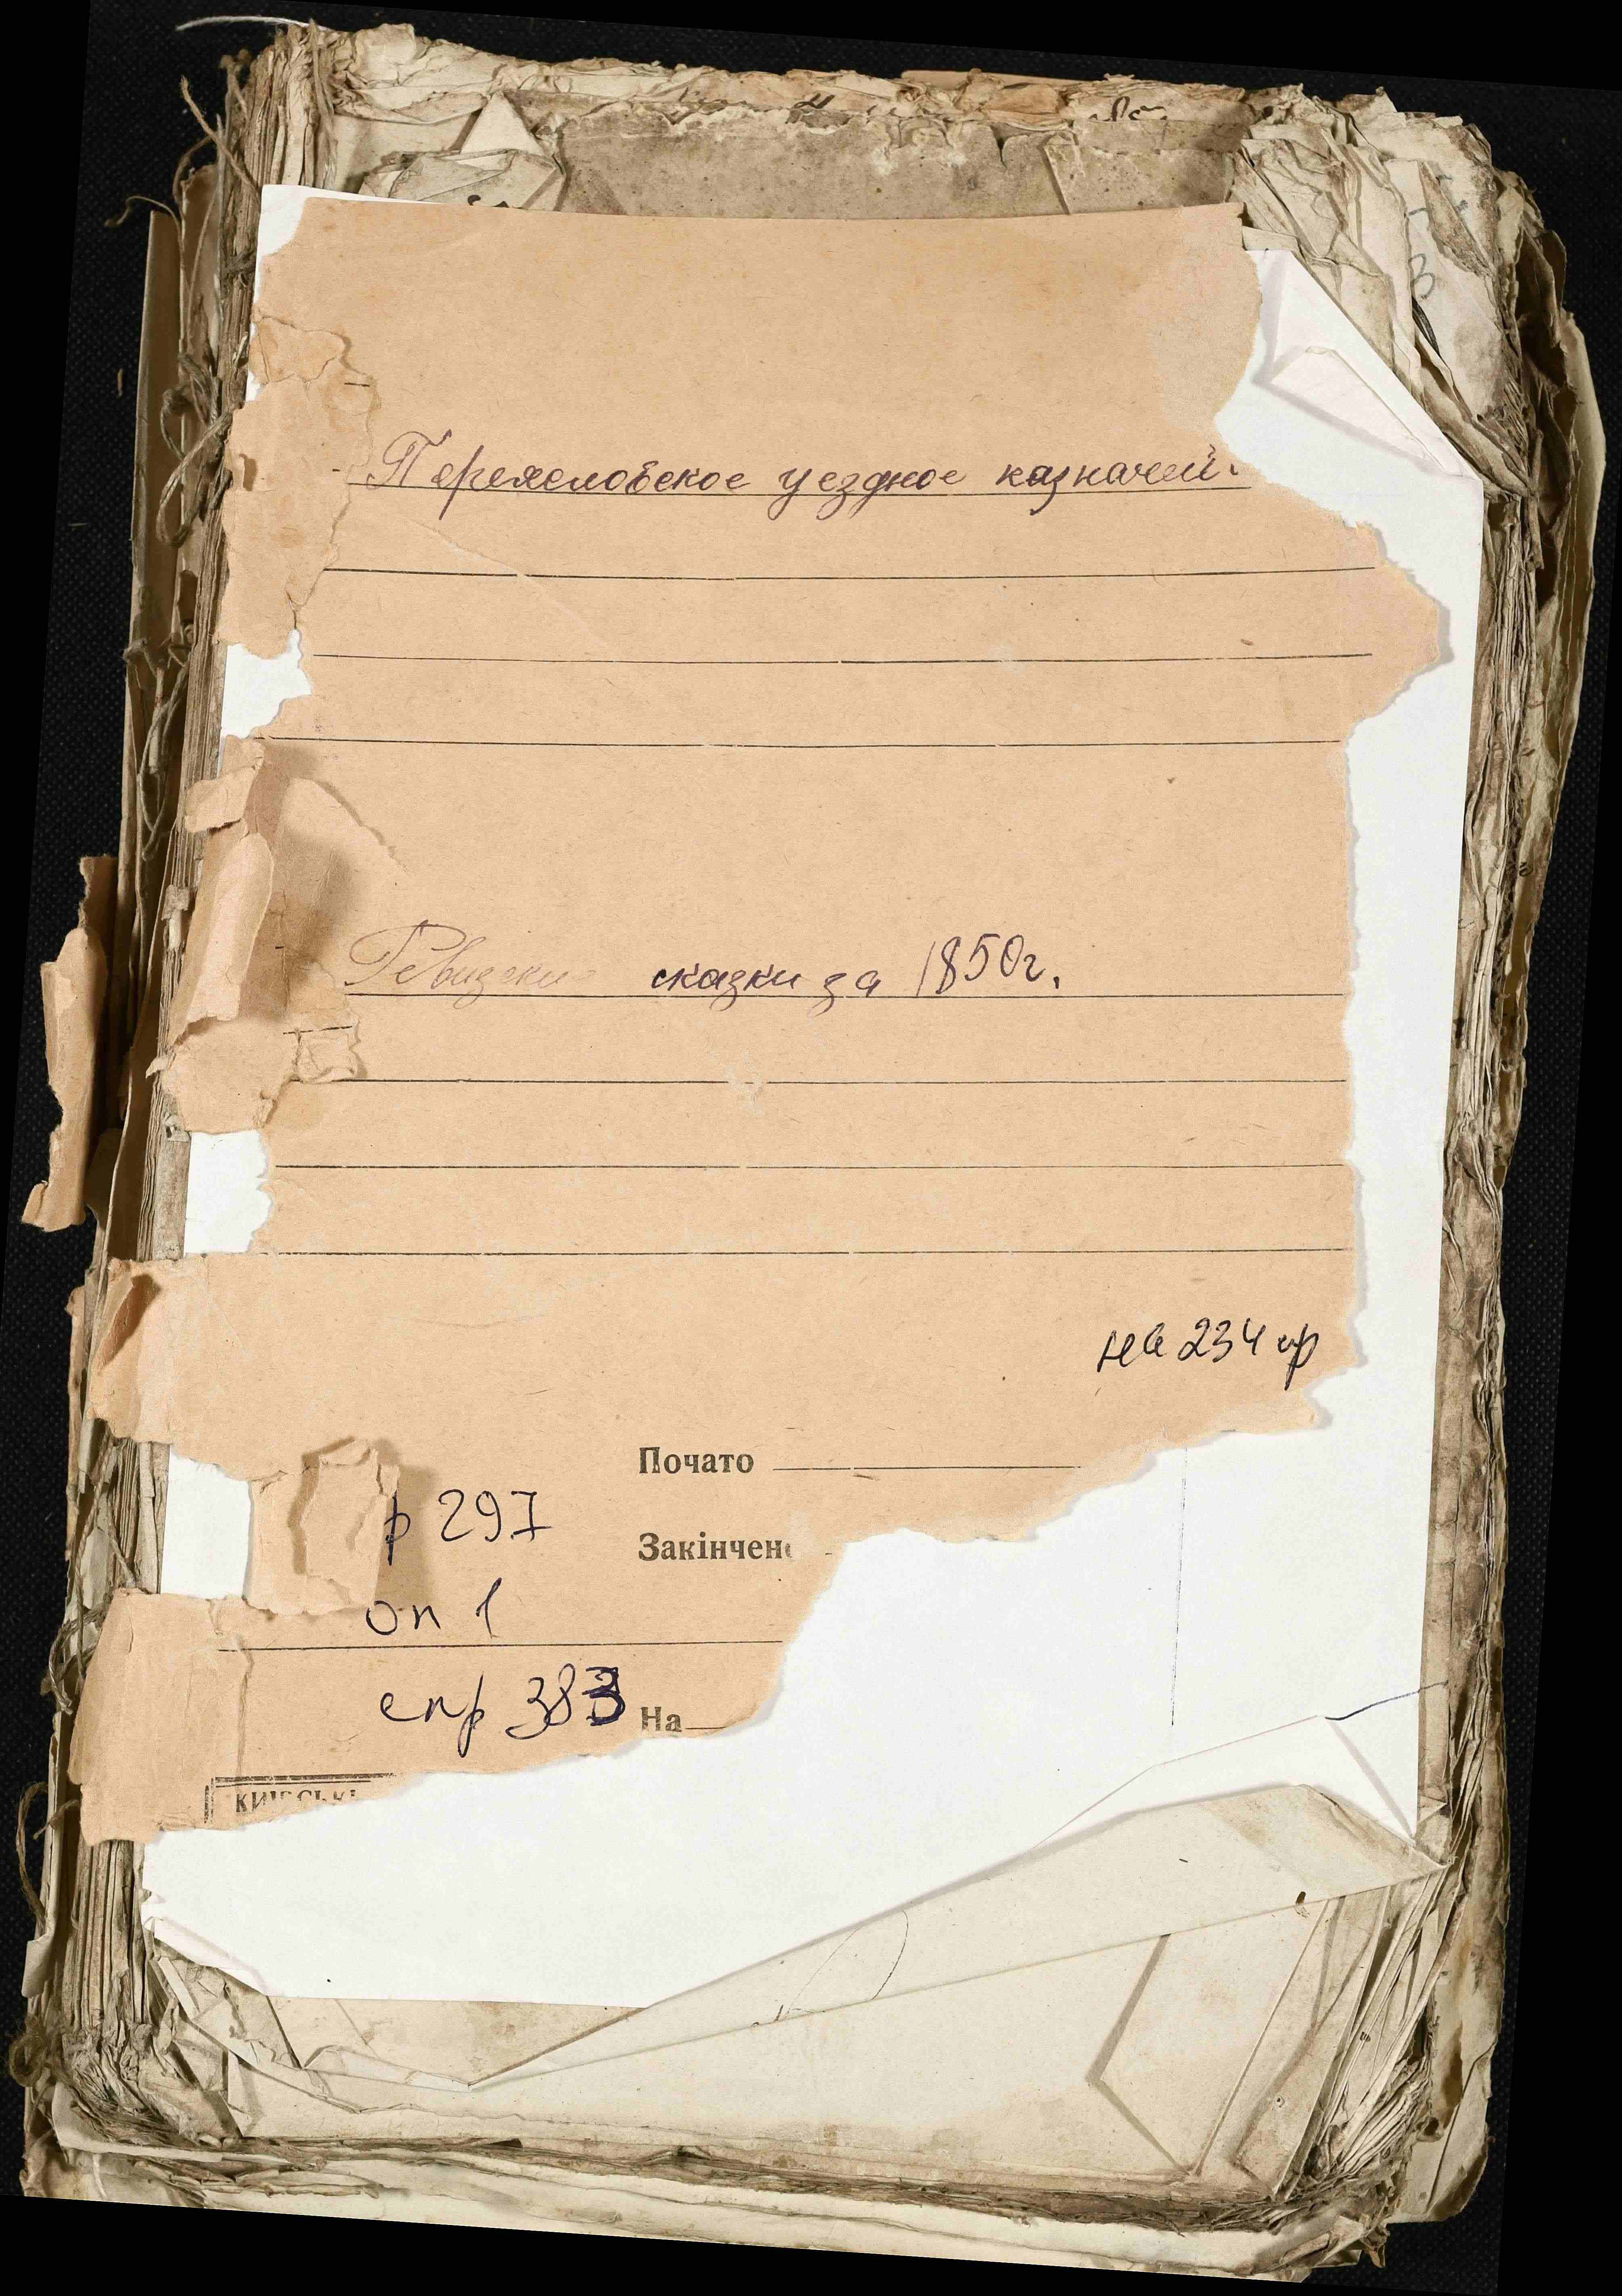 Переяславское уездное казначей
Ревизские сказки за 1850г.
на 234 ар
Почато
Закінчено
р 297
оп 1
спр 383
На
КИЇВСЬКИ